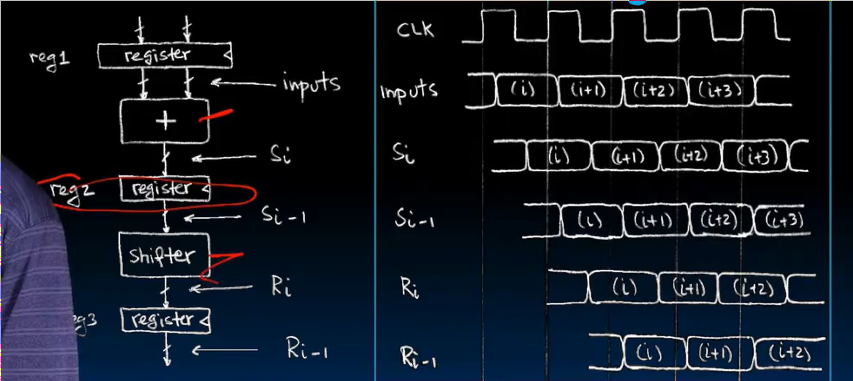 reg1
register
inputs
+
Si
reg2
register
Si-1
shifter
Ri
register
Ri-1
CLK
Inputs (i) (i+1) (i+2) (i+3)
Si (i) (i+1) (i+2) (i+3)
Si-1 (i) (i+1) (i+2) (i+3)
Ri (i) (i+1) (i+2)
Ri-1 (i) (i+1) (i+2)